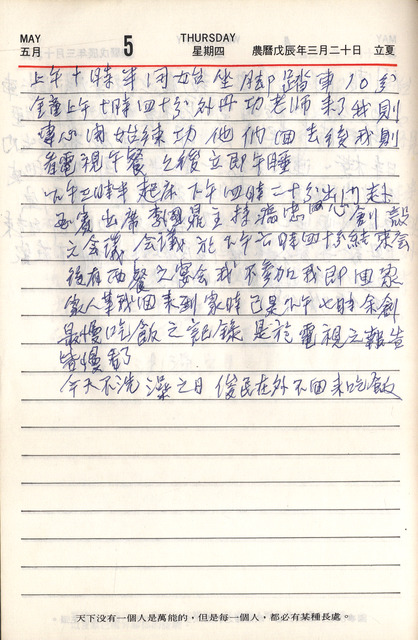 MAY
五月
5
THURSDAY
星期四
農曆戊辰年三月二十日
立夏
上午十時半開始坐腳踏車10分
鐘上午十時四十分外丹功老師來了我則
專心開始練功他們回去後我則
看電視午餐之後立即午睡
下午三時半起床下午四時二十分出門赴
出席李國鼎主持 心創設
之會議會議於下午六時四十分結束會
後有西餐之宴会我不參加我即回家
家人等我回來到家時已是下午七時余創
最慢吃飯之記錄是於電視之報告
皆慢看了
今天不洗澡之日俊民在外不回來吃飯
天下没有一個人是萬能的，但是每一個人，都必有某種長處。